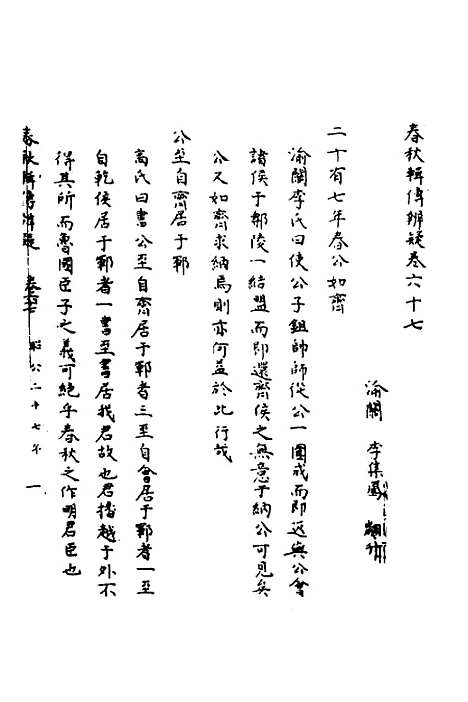 春秋輯傳辨疑卷六十七
渝關 李集鳳 翽升
二十有七年春公如齊
渝關李氏曰使公子鉏帥師從公一圍成而即返與公會
諸侯于鄟陵一結盟而即還齊侯之無意于納公可見矣
公又如齊求納焉則亦何益於此行哉
公至自齊居于鄆
高氏曰書公至自齊居于鄆者三至自會居于鄆者一至
自乾侯居于鄆者一書至書居我君故也君播越于外不
得其所而魯國臣子之義可絕乎春秋之作明君臣也
春秋輯傳辨疑 卷六七 昭公二十七年 一